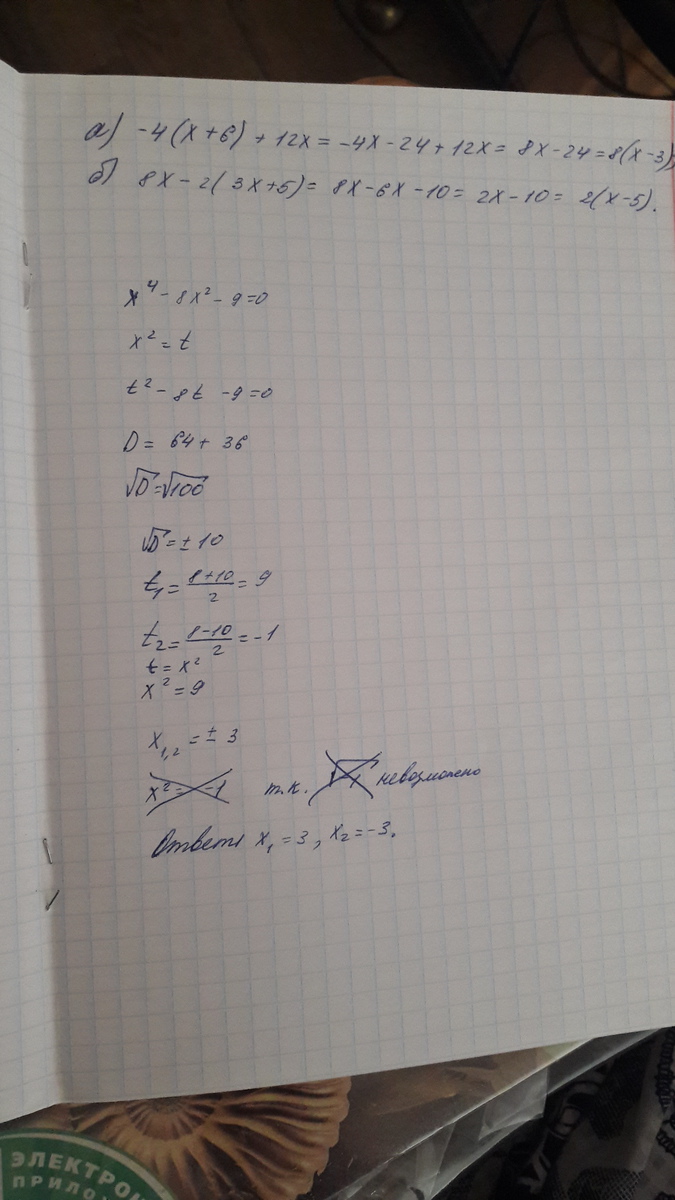 а) -4(x+6) + 12x = -4x - 24 + 12x = 8x - 24 = 8(x-3);
б) 8x - 2(3x+5) = 8x - 6x - 10 = 2x - 10 = 2(x-5).
x⁴ - 8x² - 9 = 0
x² = t
t² - 8t - 9 = 0
D = 64 + 36
√D = √100
√D = ± 10
t₁ = (8+10)/2 = 9
t₂ = (8-10)/2 = -1
t = x²
x² = 9
x₁,₂ = ± 3
x² = -1 т.к. невозможно
Ответ: x₁ = 3, x₂ = -3.
ЭЛЕКТРОН
ПРИЛО